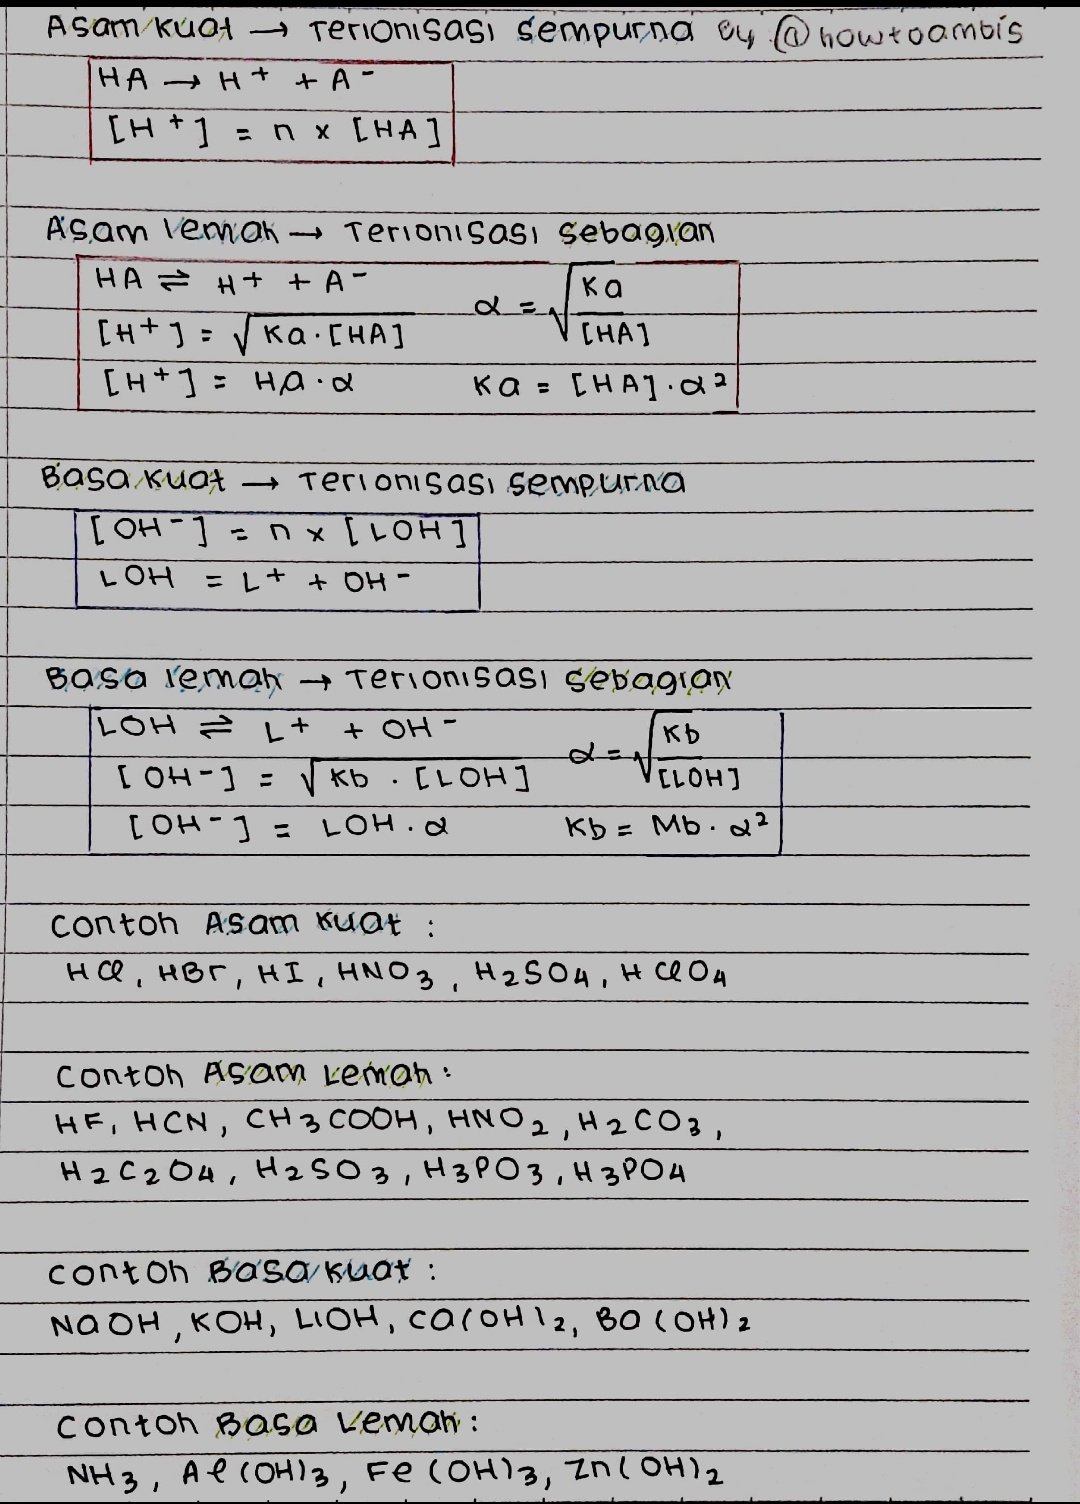 Asam kuat → Terionisasi sempurna by @howtoambis
HA → H+ + A-
[H+] = n x [HA]
Asam lemah → Terionisasi sebagian
HA ⇌ H+ + A-
α = √Ka/[HA]
[H+] = √Ka.[HA]
[H+] = Ha.α Ka = [HA].α²
Basa kuat → Terionisasi sempurna
[OH-] = n x [LOH]
LOH = L+ + OH-
Basa lemah → Terionisasi sebagian
LOH ⇌ L+ + OH-
α = √Kb/[LOH]
[OH-] = √Kb . [LOH]
[OH-] = LOH.α Kb = Mb.α²
Contoh Asam Kuat :
HCl, HBr, HI, HNO3, H2SO4, HClO4
Contoh Asam Lemah :
HF, HCN, CH3COOH, HNO2, H2CO3,
H2C2O4, H2SO3, H3PO3, H3PO4
Contoh Basa Kuat :
NaOH, KOH, LiOH, Ca(OH)2, Ba(OH)2
Contoh Basa Lemah :
NH3, Al(OH)3, Fe(OH)3, Zn(OH)2